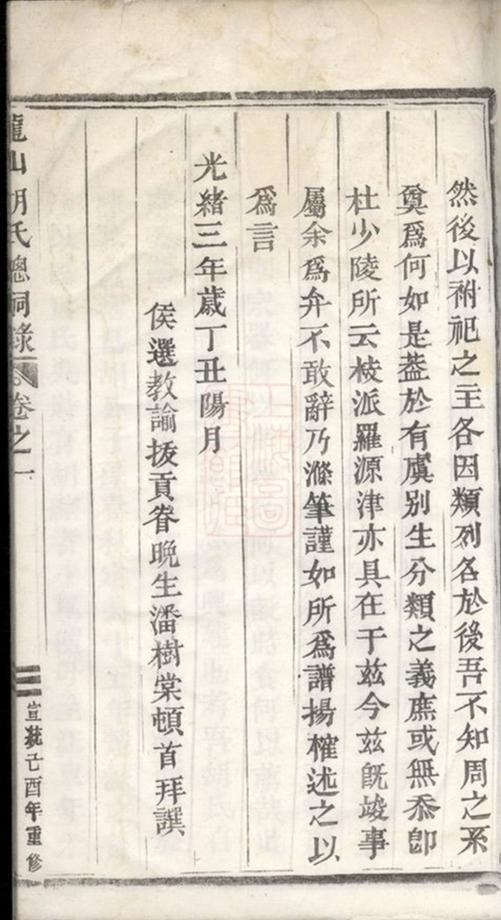 然後以祔祀之主各因類列名於後吾不知周之系
奠爲何如是葢於有虞別生分類之義庶或無忝卽
杜少陵所云枝派羅源津亦具在于玆今玆旣竣事
屬余爲弁不敢辭乃滌筆謹如所爲譜揚榷述之以
爲言
光緒三年歲丁丑陽月
侯選教諭拔貢眷晚生潘樹棠頓首拜譔
龍山胡氏總祠錄 卷之一
三 宣統己酉年重修